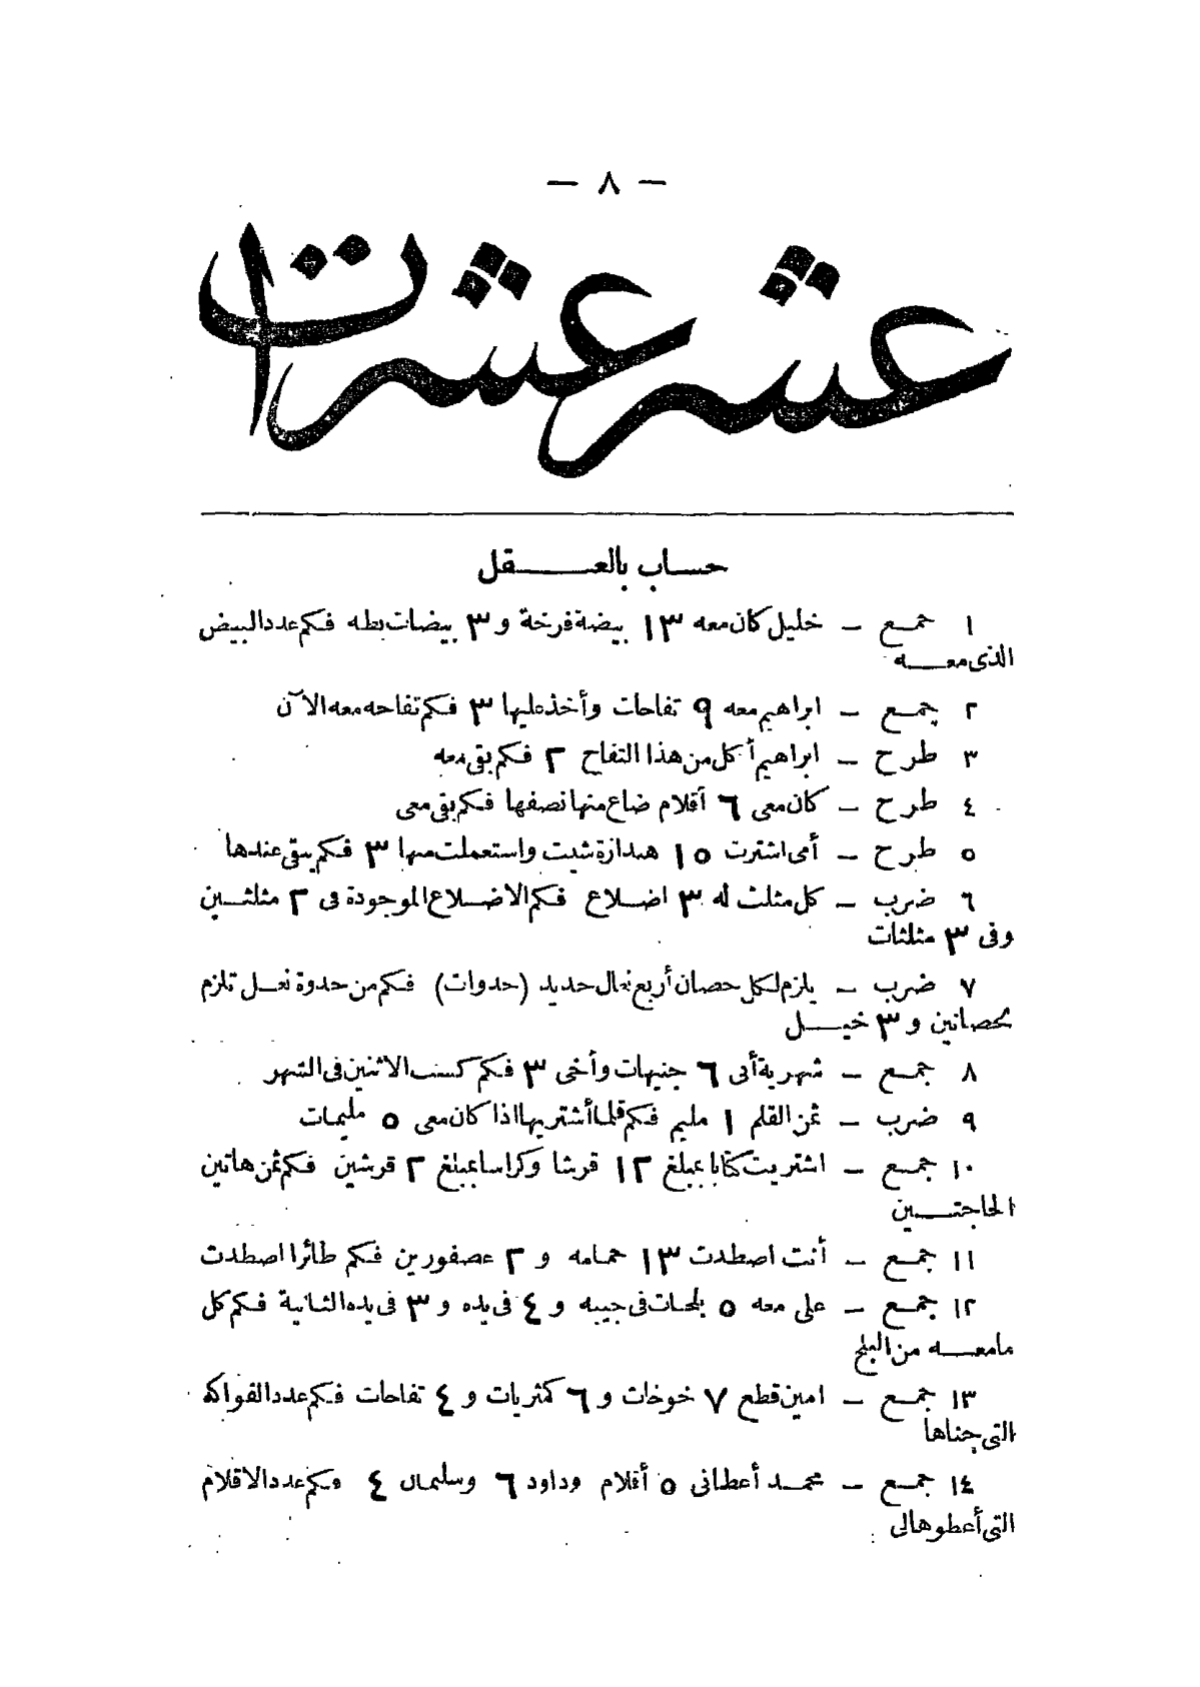 — ٨ —
عشر عشرات
حساب بالعقل
١ جمع — خليل كان معه ١٣ بيضة فرخة و ٣ بيضات بطه فكم عدد البيض
الذى معه
٢ جمع — ابراهيم معه ٩ تفاحات وأخذ عليها ٣ فكم تفاحه معه الآن
٣ طرح — ابراهيم أكل من هذا التفاح ٢ فكم بقى معه
٤ طرح — كان معى ٦ أقلام ضاع منها نصفها فكم بقى معى
٥ طرح — أمى اشترت ١٥ هندازة شيت واستعملت منها ٣ فكم يبقى عندها
٦ ضرب — كل مثلث له ٣ اضلاع فكم الاضلاع الموجودة فى ٢ مثلثين
وفى ٣ مثلثات
٧ ضرب — يلزم لكل حصان أربع نعال حديد (حدوات) فكم من حدوة نعل تلزم
لحصانين و ٣ خيل
٨ جمع — شهرية أبى ٦ جنيهات وأخى ٣ فكم كسب الاثنين فى الشهر
٩ ضرب — ثمن القلم ١ مليم فكم قلما أشتريها اذا كان معى ٥ مليمات
١٠ جمع — اشتريت كتابا بمبلغ ١٢ قرشا وكراسا بمبلغ ٢ قرشين فكم ثمن هاتين
الحاجتين
١١ جمع — أنت اصطدت ١٣ حمامه و ٢ عصفورين فكم طائرا اصطدت
١٢ جمع — على معه ٥ بلحات فى جيبه و ٤ فى يده و ٣ فى يده الثانية فكم كل
مامعه من البلح
١٣ جمع — امين قطع ٧ خوخات و ٦ كمثريات و ٤ تفاحات فكم عدد الفواكه
التى جناها
١٤ جمع — محمد أعطانى ٥ أقلام وداود ٦ وسليمان ٤ فكم عدد الاقلام
التى أعطوهالى